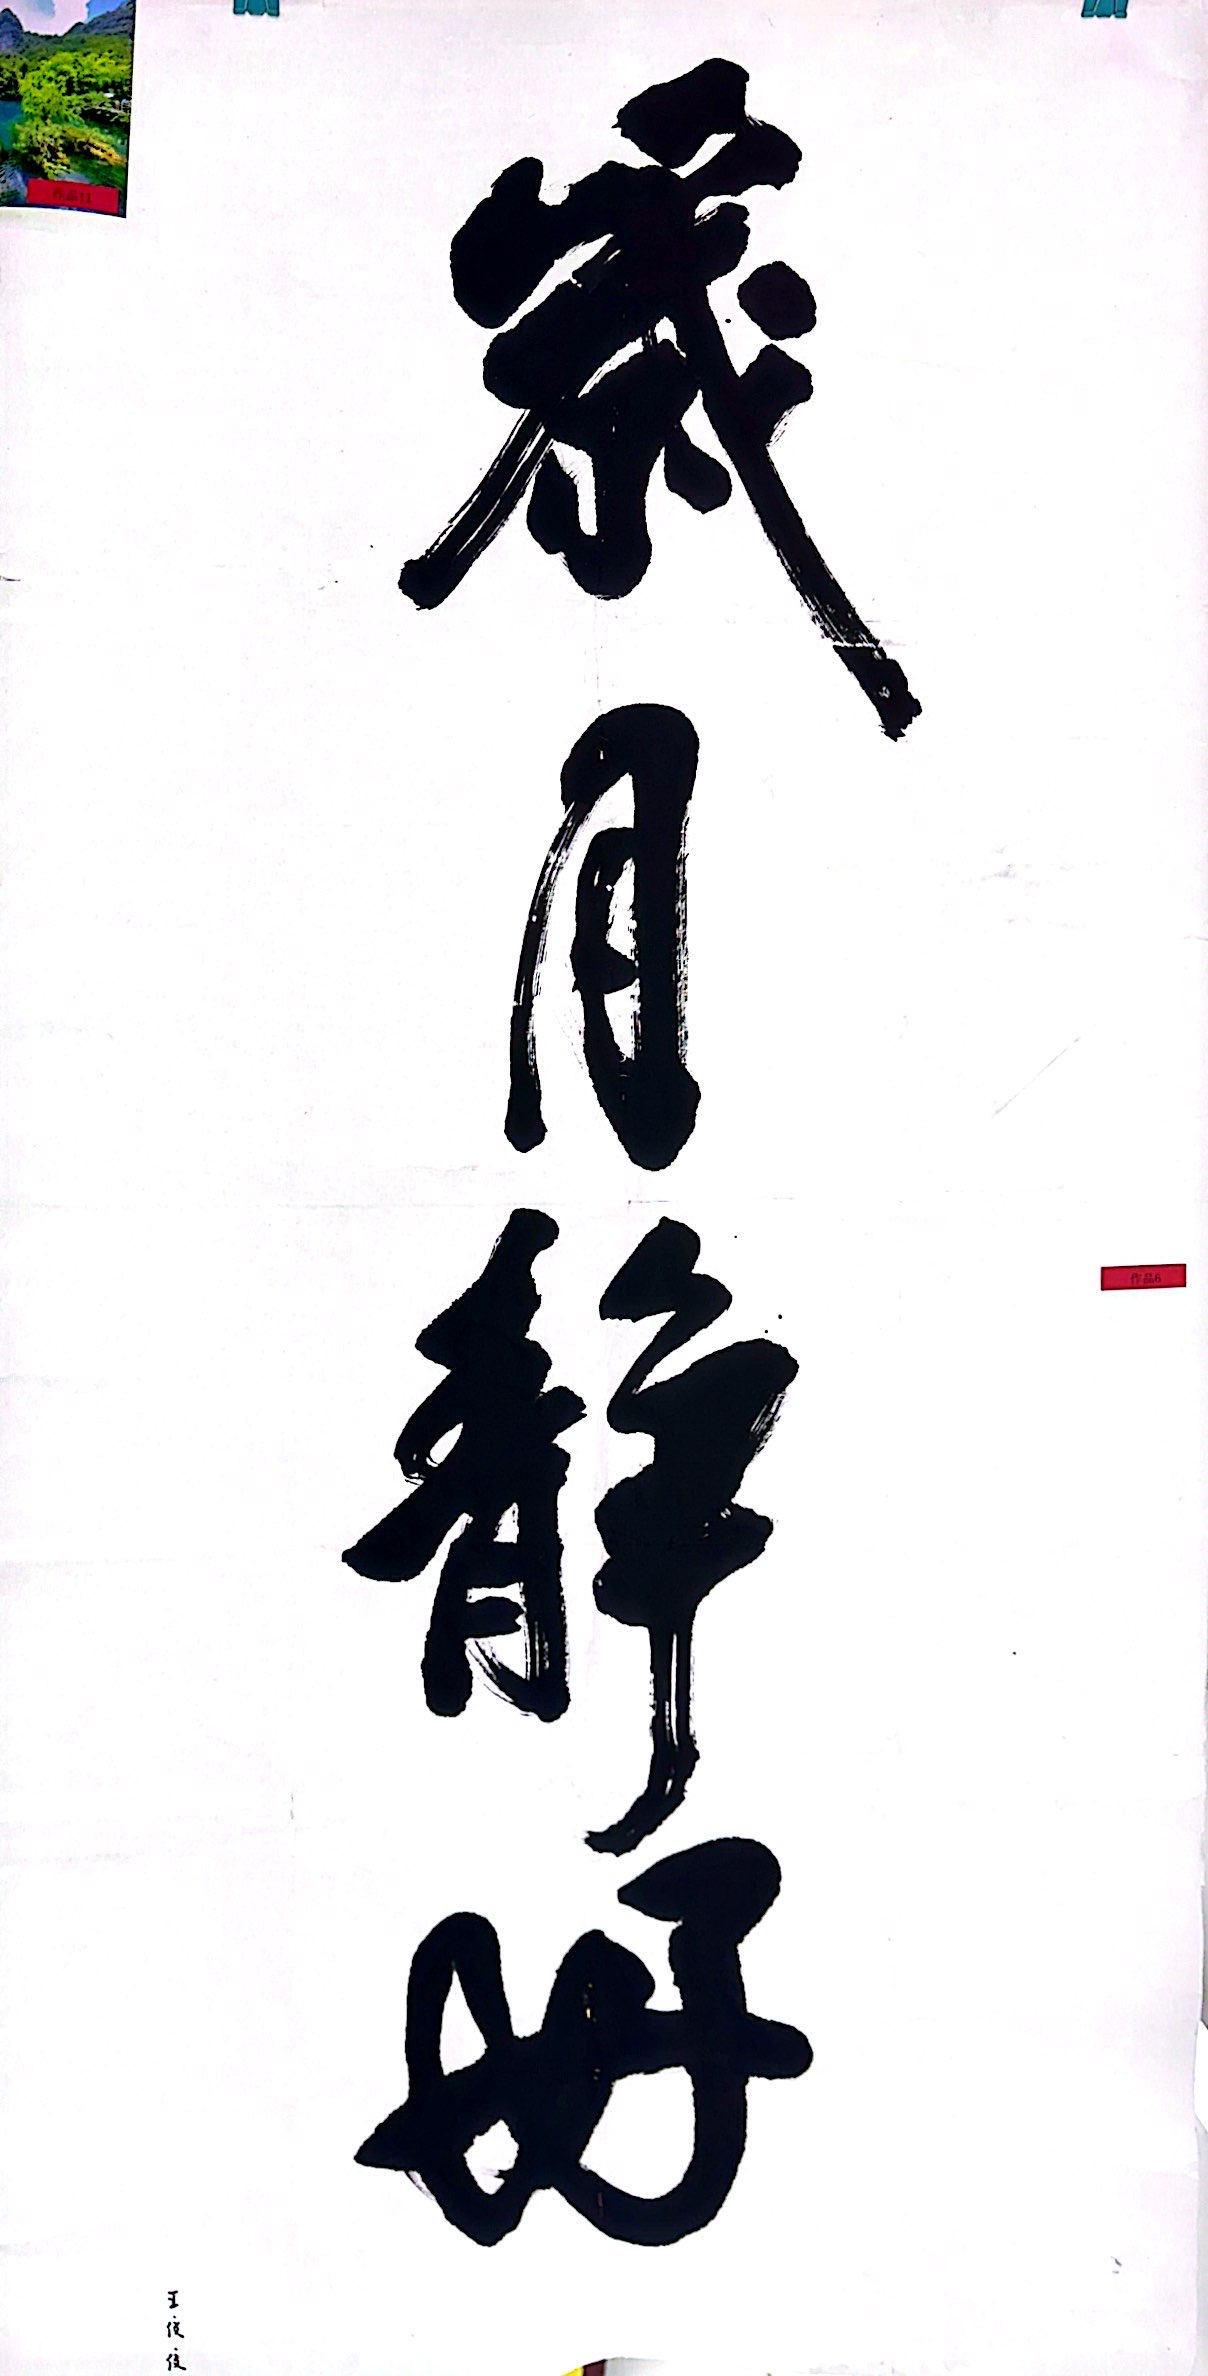 歳月静好
王俊俊
作品6
作品11